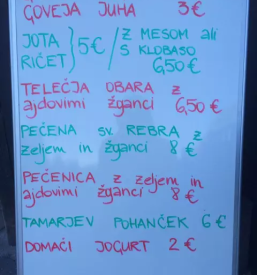 GOVEJA JUHA 3€
JOTA } 5€ / Z MESOM ali
RIČET S KLOBASO
6,50€
TELEČJA OBARA z
ajdovimi žganci 6,50€
PEČENA sv. REBRA z
zeljem in žganci 8€
PEČENICA z zeljem in
ajdovimi žganci 8€
TAMARJEV POHANČEK 6€
DOMAČI JOGURT 2€